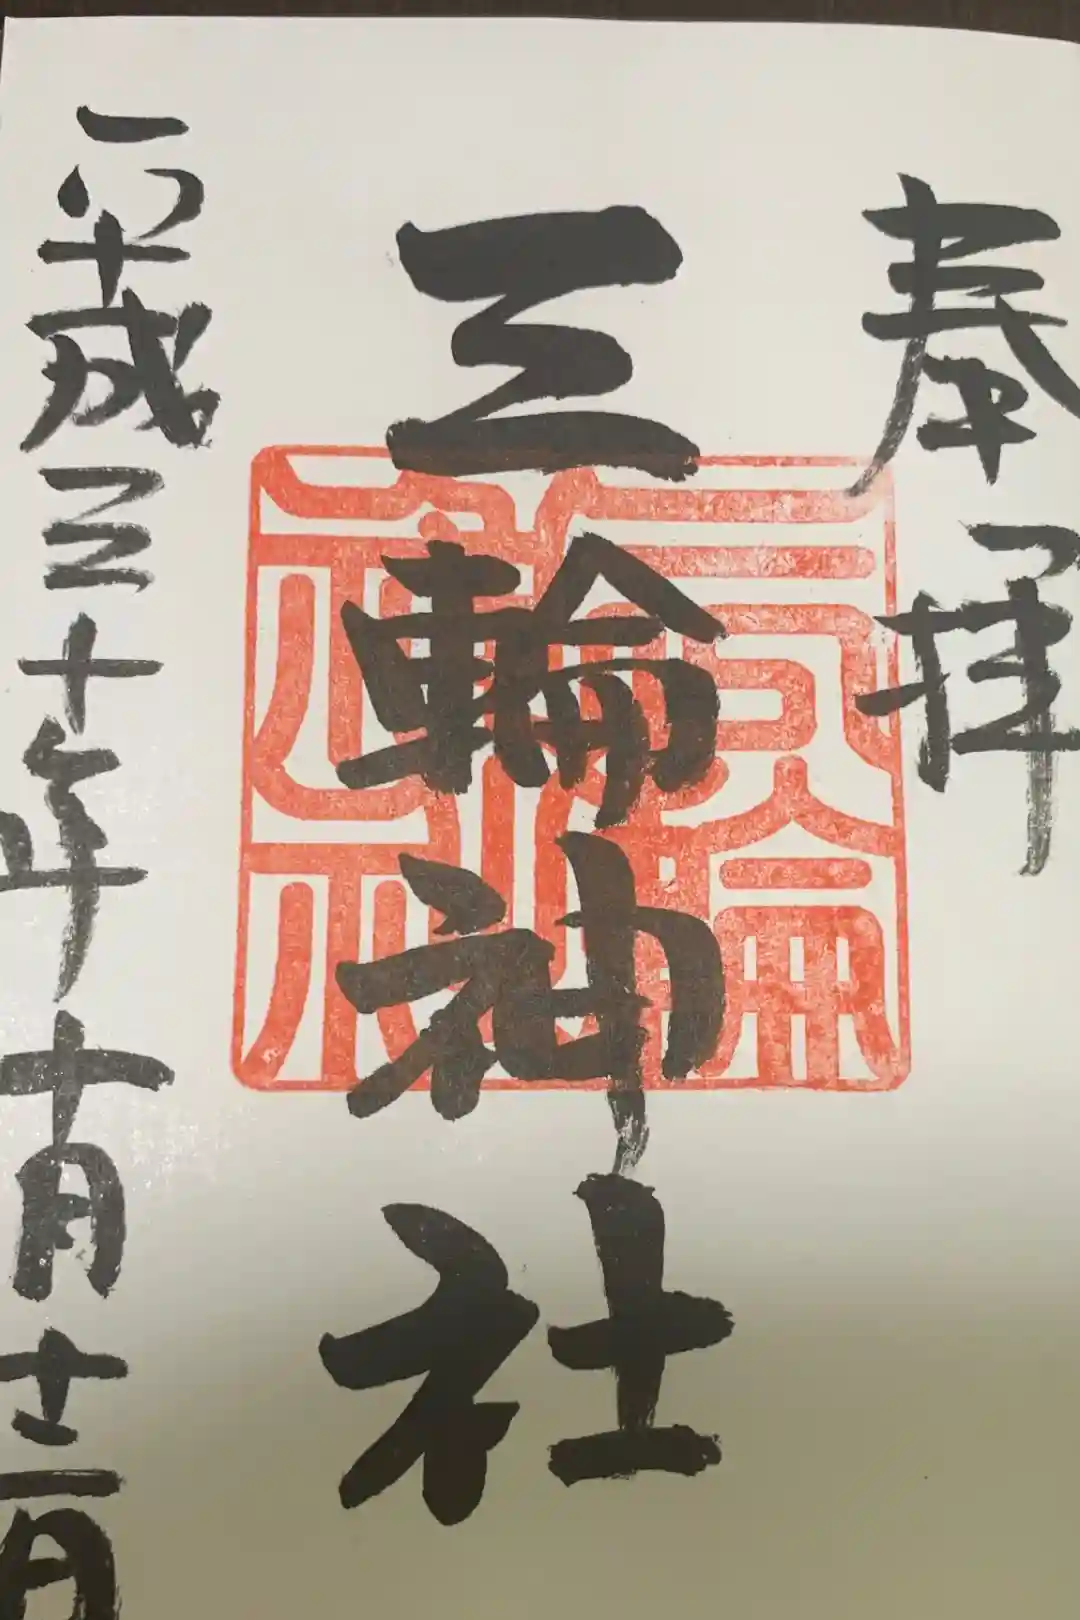 奉拝
三輪神社
三輪神社
平成三十年十月十二日